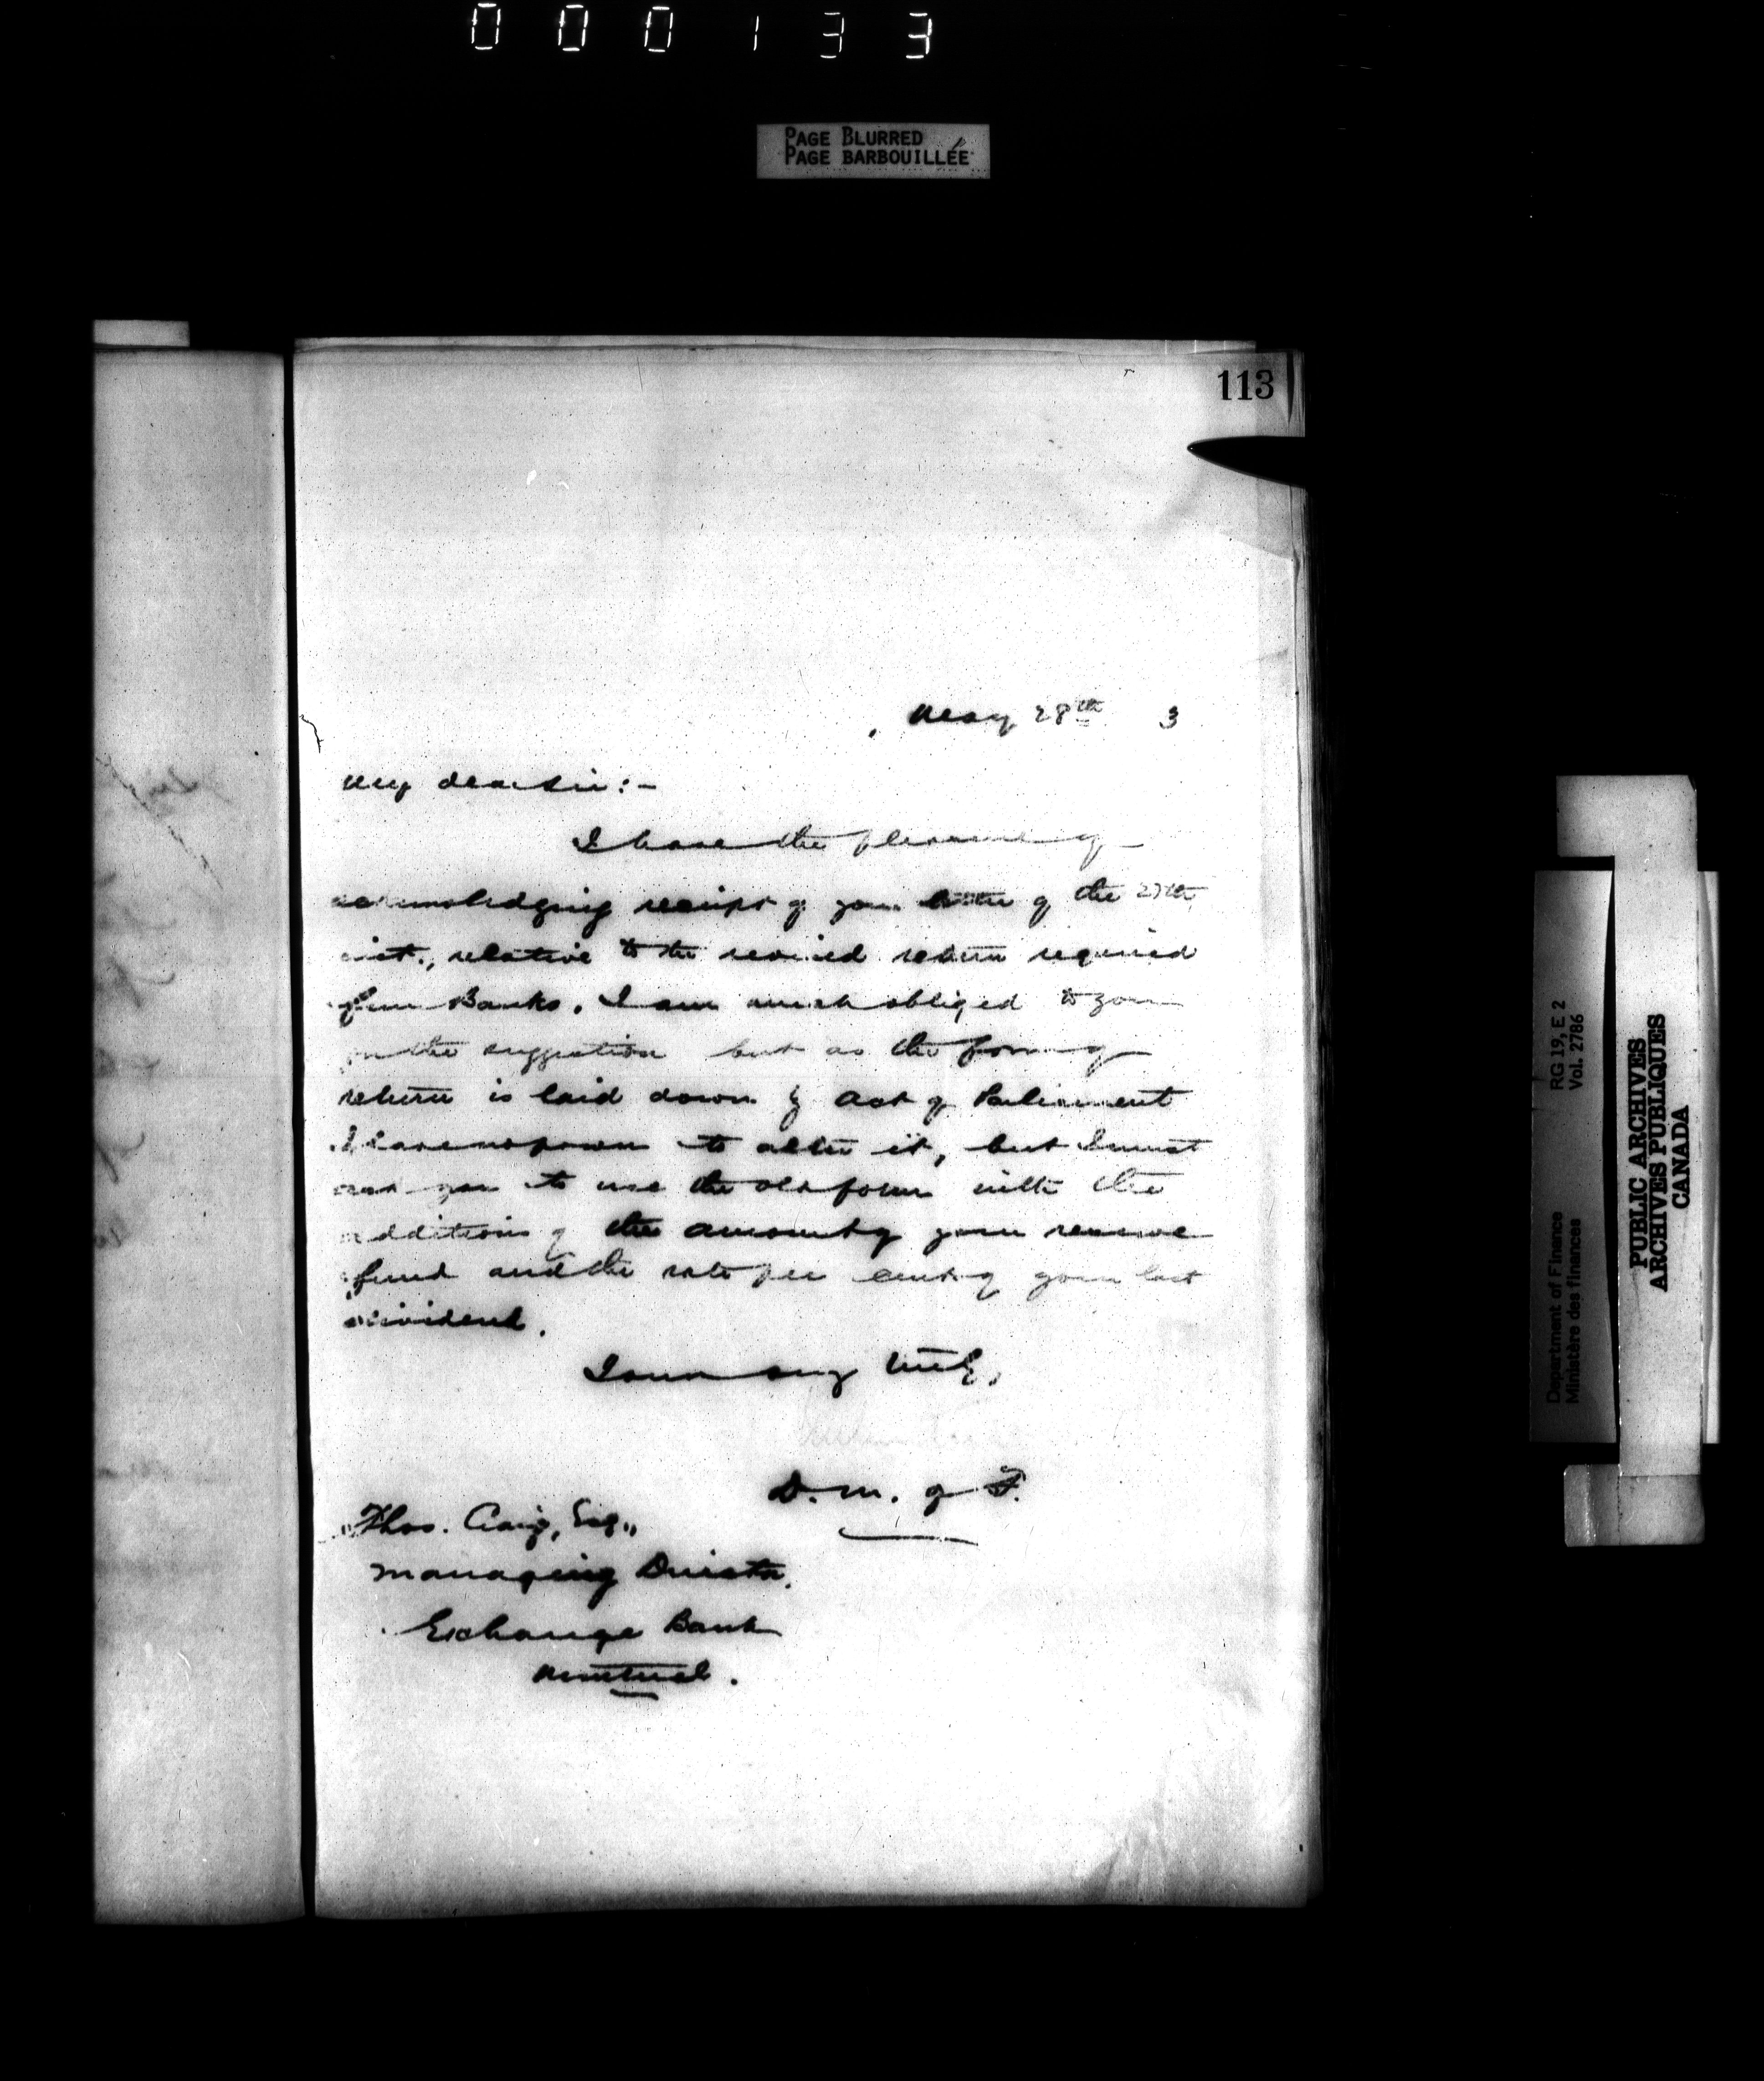 000133
PAGE BLURRED
PAGE BARBOUILLÉE
113
May 28th 3
My dear Sir:-
I have the pleasure of
acknowledging receipt of your letter of the 27th
inst., relative to the revised return required
from Banks. I am much obliged to you
for the suggestion but as the form of
return is laid down by Act of Parliament
I have no power to alter it, but I must
ask you to use the old form with the
addition of the amount of your reserve
fund and the rate per cent of your last
dividend.
I am very truly,
D. M. of F.
Thos. Craig, Esq.,
Managing Director,
Exchange Bank
Montreal.
RG 19, E 2
Vol. 2786
Department of Finance
Ministère des finances
PUBLIC ARCHIVES
ARCHIVES PUBLIQUES
CANADA